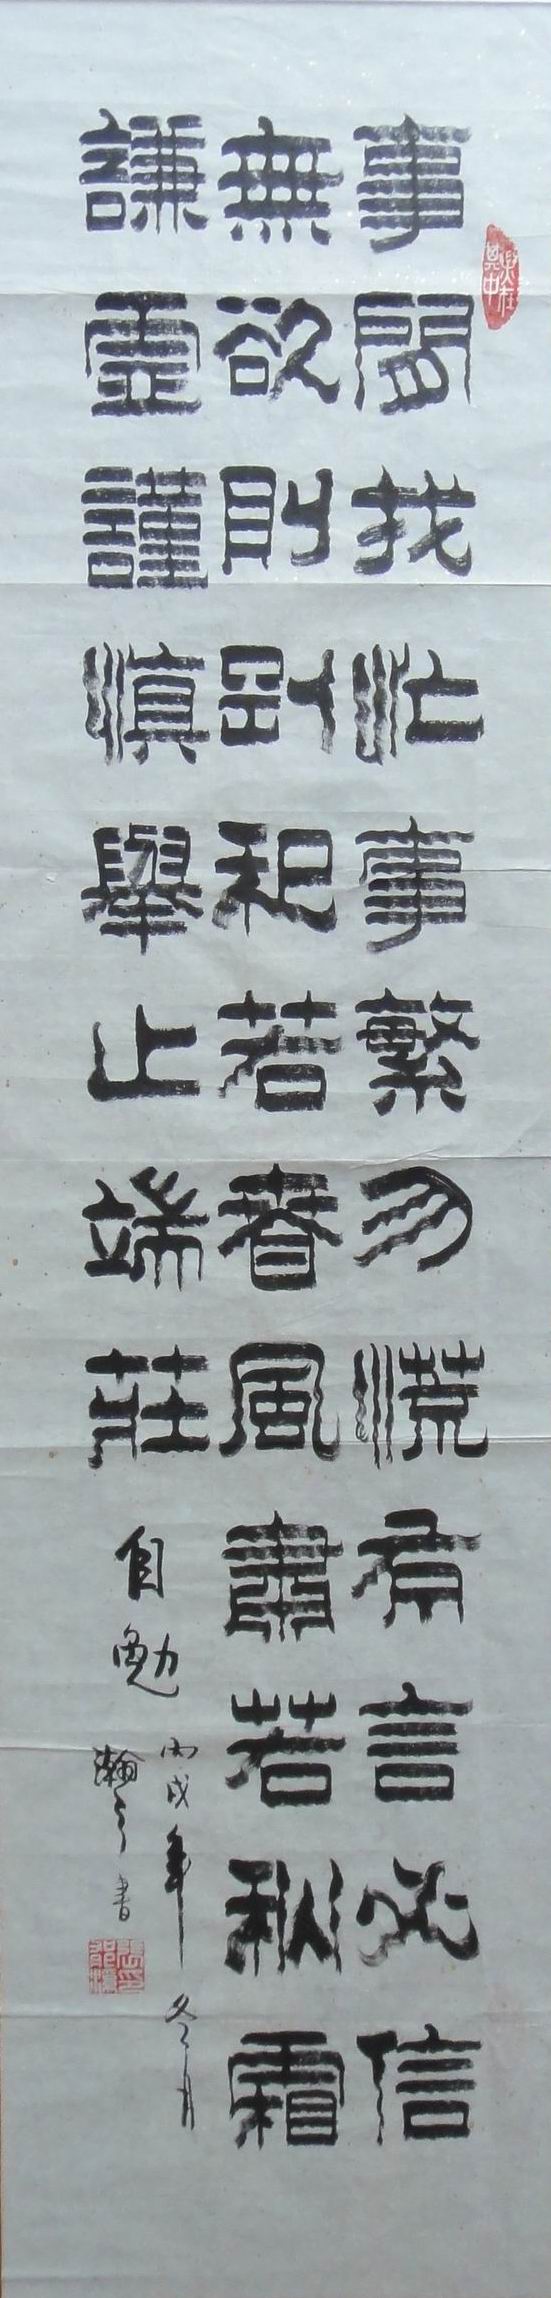 事閒找忙事繁勿慌有言必信
無欲則剛和若春風肅若秋霜
謙虛謹慎舉止端莊
自勉
丙戌年冬月
瀚之書